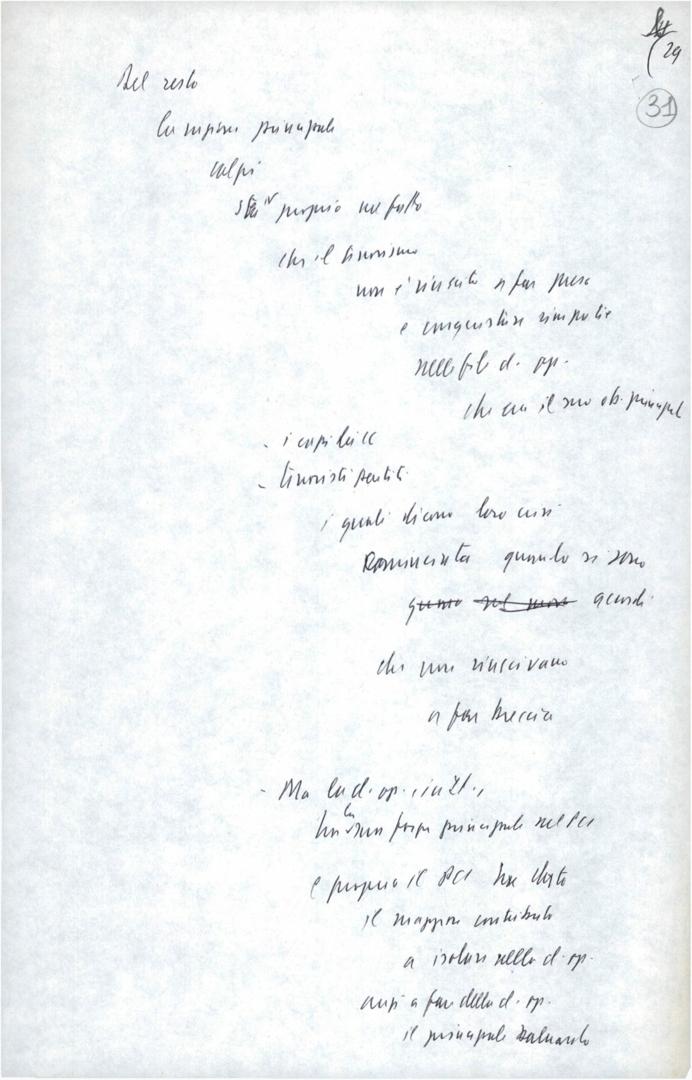 29
31
Del resto
la ragione principale
colpi
sta proprio nel fatto
che il terrorismo
non è riuscito a far presa
e conquistare simpatie
nelle file d. op.
che era il suo ob. principal
- i capi br
- terroristi pentiti
i quali dicono loro crisi
cominciata quando si sono
accorti
che non riuscivano
a far breccia
- Ma la cl. op. in It.
ha la sua forza principale nel PCI
e proprio il PCI ha dato
il maggior contributo
a isolare nella cl. op.
anzi a fare della cl. op.
il principale baluardo